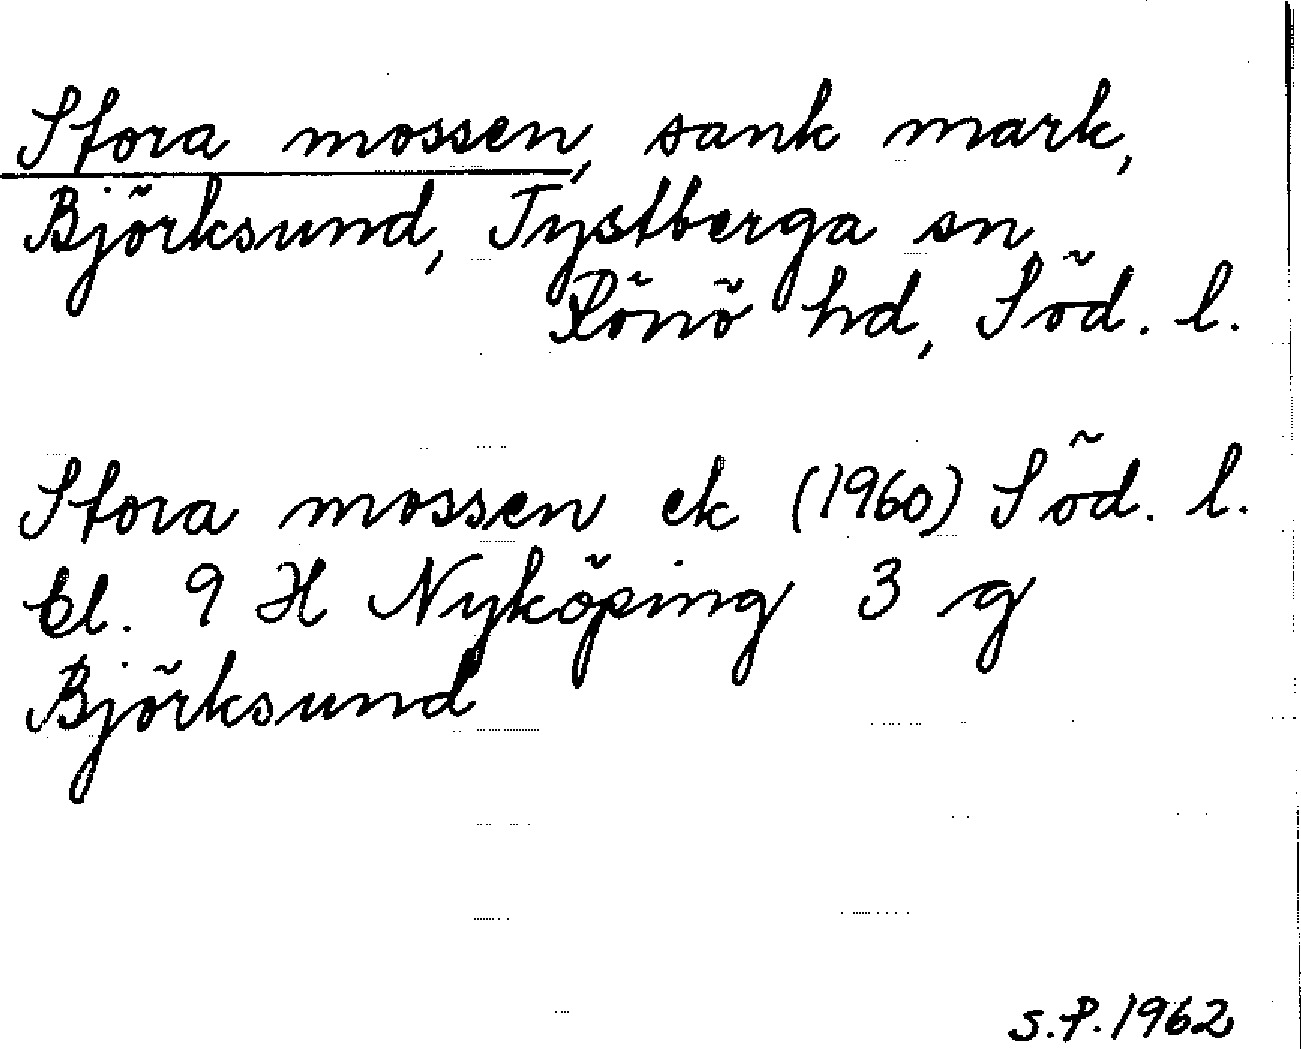 Stora mossen, sank mark,
Björksund, Tystberga sn
Rönö hd, Söd. l.
Stora mossen ek (1960) Söd. l.
bl. 9 H Nyköping 3 g
Björksund
S.P. 1962